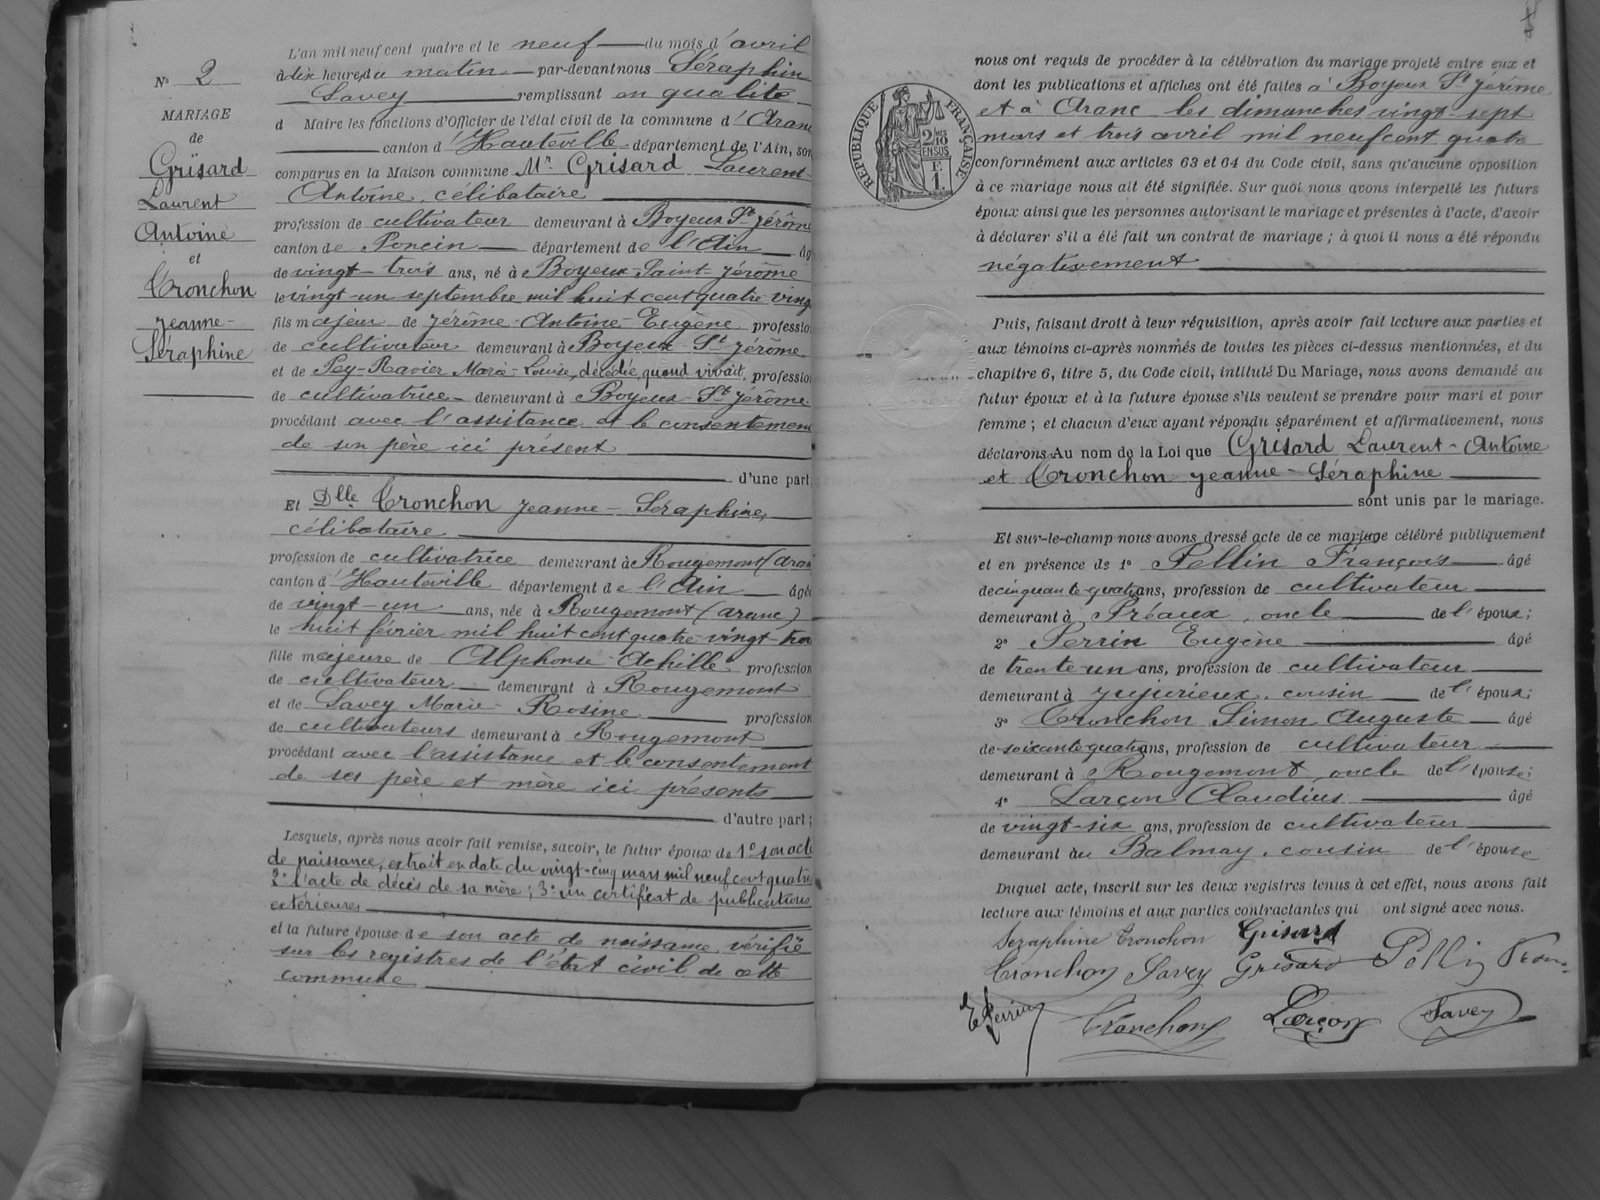 L'an mil neuf cent quatre et le neuf du mois d'avril
N° 2
à dix heures du matin par-devant nous Séraphin
Savey remplissant en qualité
MARIAGE
de
Grisard
Laurent
Antoine
et
Tronchon
Jeanne-
Séraphine
d Maire les fonctions d'Officier de l'état civil de la commune d'Aranc
canton d'Hauteville département de l'Ain, son
comparus en la Maison commune Mr. Grisard Laurent-
Antoine, célibataire
profession de cultivateur demeurant à Boyeux St Jérôme
canton de Poncin département de l'Ain âg
de vingt-trois ans, né à Boyeux-Saint-Jérôme
le vingt-un septembre mil huit cent quatre ving
fils majeur de Jérôme-Antoine-Eugène professio
de cultivateur demeurant à Boyeux St Jérôme
et de Pey-Ravier Marie-Louise, décédée, quand vivait, professio
de cultivatrice demeurant à Boyeux-St Jérôme
procédant avec l'assistance et le consentemen
de son père ici présent
d'une part,
Et Dlle Tronchon Jeanne-Séraphine,
célibataire
profession de cultivatrice demeurant à Rougemont (aran
canton d'Hauteville département de l'Ain âgé
de vingt-un ans, née à Rougemont (aranc)
le huit février mil huit cent quatre-vingt-troi
fille majeure de Alphonse-Achille profession
de cultivateur demeurant à Rougemont
et de Savey Marie-Rosine profession
de cultivateurs demeurant à Rougemont
procédant avec l'assistance et le consentement
de ses père et mère ici présents
d'autre part;
Lesquels, après nous avoir fait remise, savoir, le futur époux de 1° son acte
de naissance, extrait en date du vingt-cinq mars mil neuf cent quatre
2° l'acte de décès de sa mère; 3° un certificat de publications
extérieures
et la future épouse de son acte de naissance vérifié
sur les registres de l'état civil de cette
commune
nous ont requis de procéder à la célébration du mariage projeté entre eux et
dont les publications et affiches ont été faites à Boyeux St Jérôme
et à Aranc les dimanches vingt-sept
mars et trois avril mil neuf cent quatre
RÉPUBLIQUE FRANÇAISE
conformément aux articles 63 et 64 du Code civil, sans qu'aucune opposition
à ce mariage nous ait été signifiée. Sur quoi nous avons interpellé les futurs
époux ainsi que les personnes autorisant le mariage et présentes à l'acte, d'avoir
à déclarer s'il a été fait un contrat de mariage; à quoi il nous a été répondu
négativement
Puis, faisant droit à leur réquisition, après avoir fait lecture aux parties et
aux témoins ci-après nommés de toutes les pièces ci-dessus mentionnées, et du
chapitre 6, titre 5, du Code civil, intitulé Du Mariage, nous avons demandé au
futur époux et à la future épouse s'ils veulent se prendre pour mari et pour
femme; et chacun d'eux ayant répondu séparément et affirmativement, nous
déclarons Au nom de la Loi que Grisard Laurent-Antoine
et Tronchon Jeanne-Séraphine
sont unis par le mariage.
Et sur-le-champ nous avons dressé acte de ce mariage célébré publiquement
et en présence de 1° Pellin François âgé
de cinquante-quatre ans, profession de cultivateur
demeurant à Préaux, oncle de l'époux;
2° Perrin Eugène âgé
de trente-un ans, profession de cultivateur
demeurant à Jujurieux, cousin de l'époux;
3° Tronchon Simon Auguste âgé
de soixante quatre ans, profession de cultivateur
demeurant à Rougemont, oncle de l'épouse;
4° Larçon Claudius âgé
de vingt-six ans, profession de cultivateur
demeurant au Balmay, cousin de l'épouse
Duquel acte, inscrit sur les deux registres tenus à cet effet, nous avons fait
lecture aux témoins et aux parties contractantes qui ont signé avec nous.
Seraphine Tronchon Grisard
Tronchon Savey Grisard Pellin
E Perrin Tronchon Larçon Savey